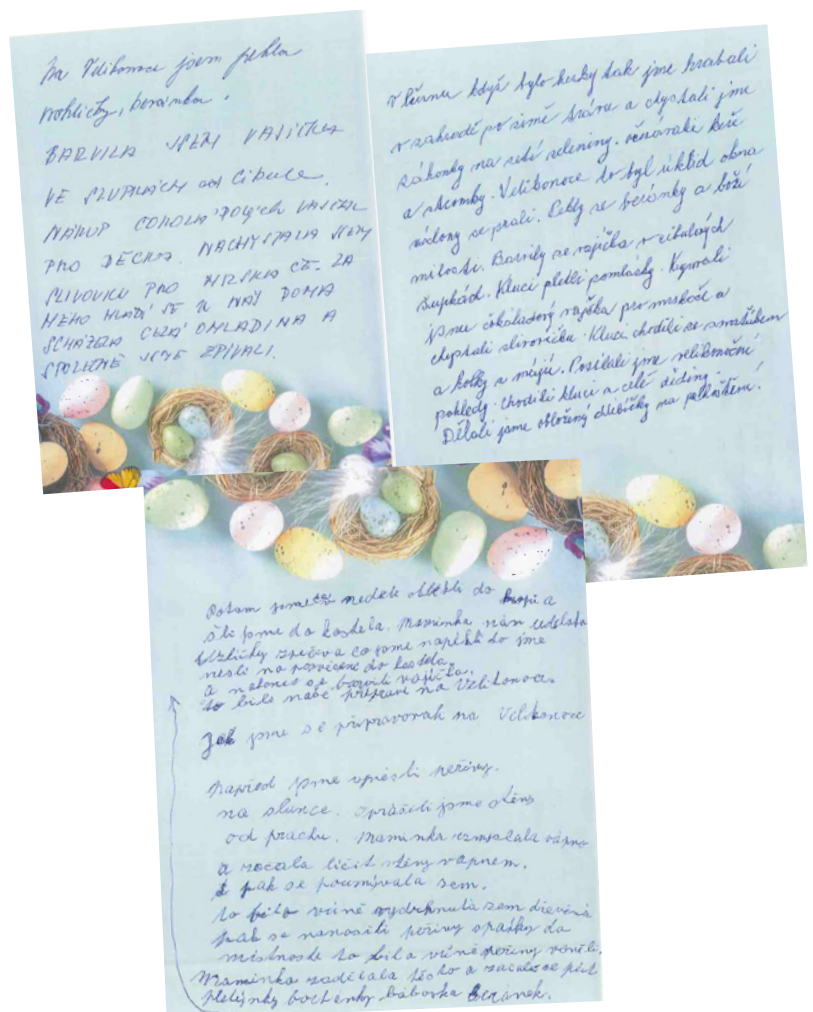 Na Velikonoce jsem pekla
rohlíčky, beránka.
BARVILA JSEM VAJÍČKA
VE SLUPKÁCH od Cibule.
NÁKUP ČOKOLÁDOVÝCH VAJÍČEK
PRO DĚCKA. NACHYSTALA JSEM
SLIVOVICU PRO MRSKAČE. ZA
MÉHO MLÁDÍ SE U NÁS DOMA
SCHÁZELA CELÁ OMLADINA A
SPOLEČNĚ JSME ZPÍVALI.
když bylo hezky tak jme hrabali
v zahradě po zimě trávu a chystali jme
záhonky na setí zeleniny. keře
a stromky. Velikonoce to byl úklid okna
záclony se prali. Pekly se beránky a boží
milosti. Barvily se vajíčka v cibulových
šupkách. Kluci pletli pomlásky. Kupovali
jsme čokoládový vajíčka pro mrskače a
chystali slivovičku. Kluci chodili se
a holky s májú. Posílali jme velikonoční
pohledy. chodili kluci z celé dědiny.
Dělali jsme obložený chlebíčky na pohoštění.
Potom jsme se oblékli do kroji a
šli jsme do kostela. Maminka nám udělala
uzlíčky zpečiva co jsme napékli to jme
nesli na posvícení do kostela
a nakonec se barvili vajíčka.
to bilo naše přípravi na Velikonoce.
Jak jsme se připravovali na Velikonoce
Napřed jsme vynesli peřiny.
na slunce. oprášili jsme stěny
od prachu. Maminka vápno
a začala líčit stěny vápnem.
a pak se poumývala zem.
to bilo vydrhnutá zem dřevěná
pak se nanosili peřiny spátky do
místnosti to bila vůně peřiny voněli.
Maminka zadělala těsto a začalo se péct
pletýnky bochánky bábovka beránek.